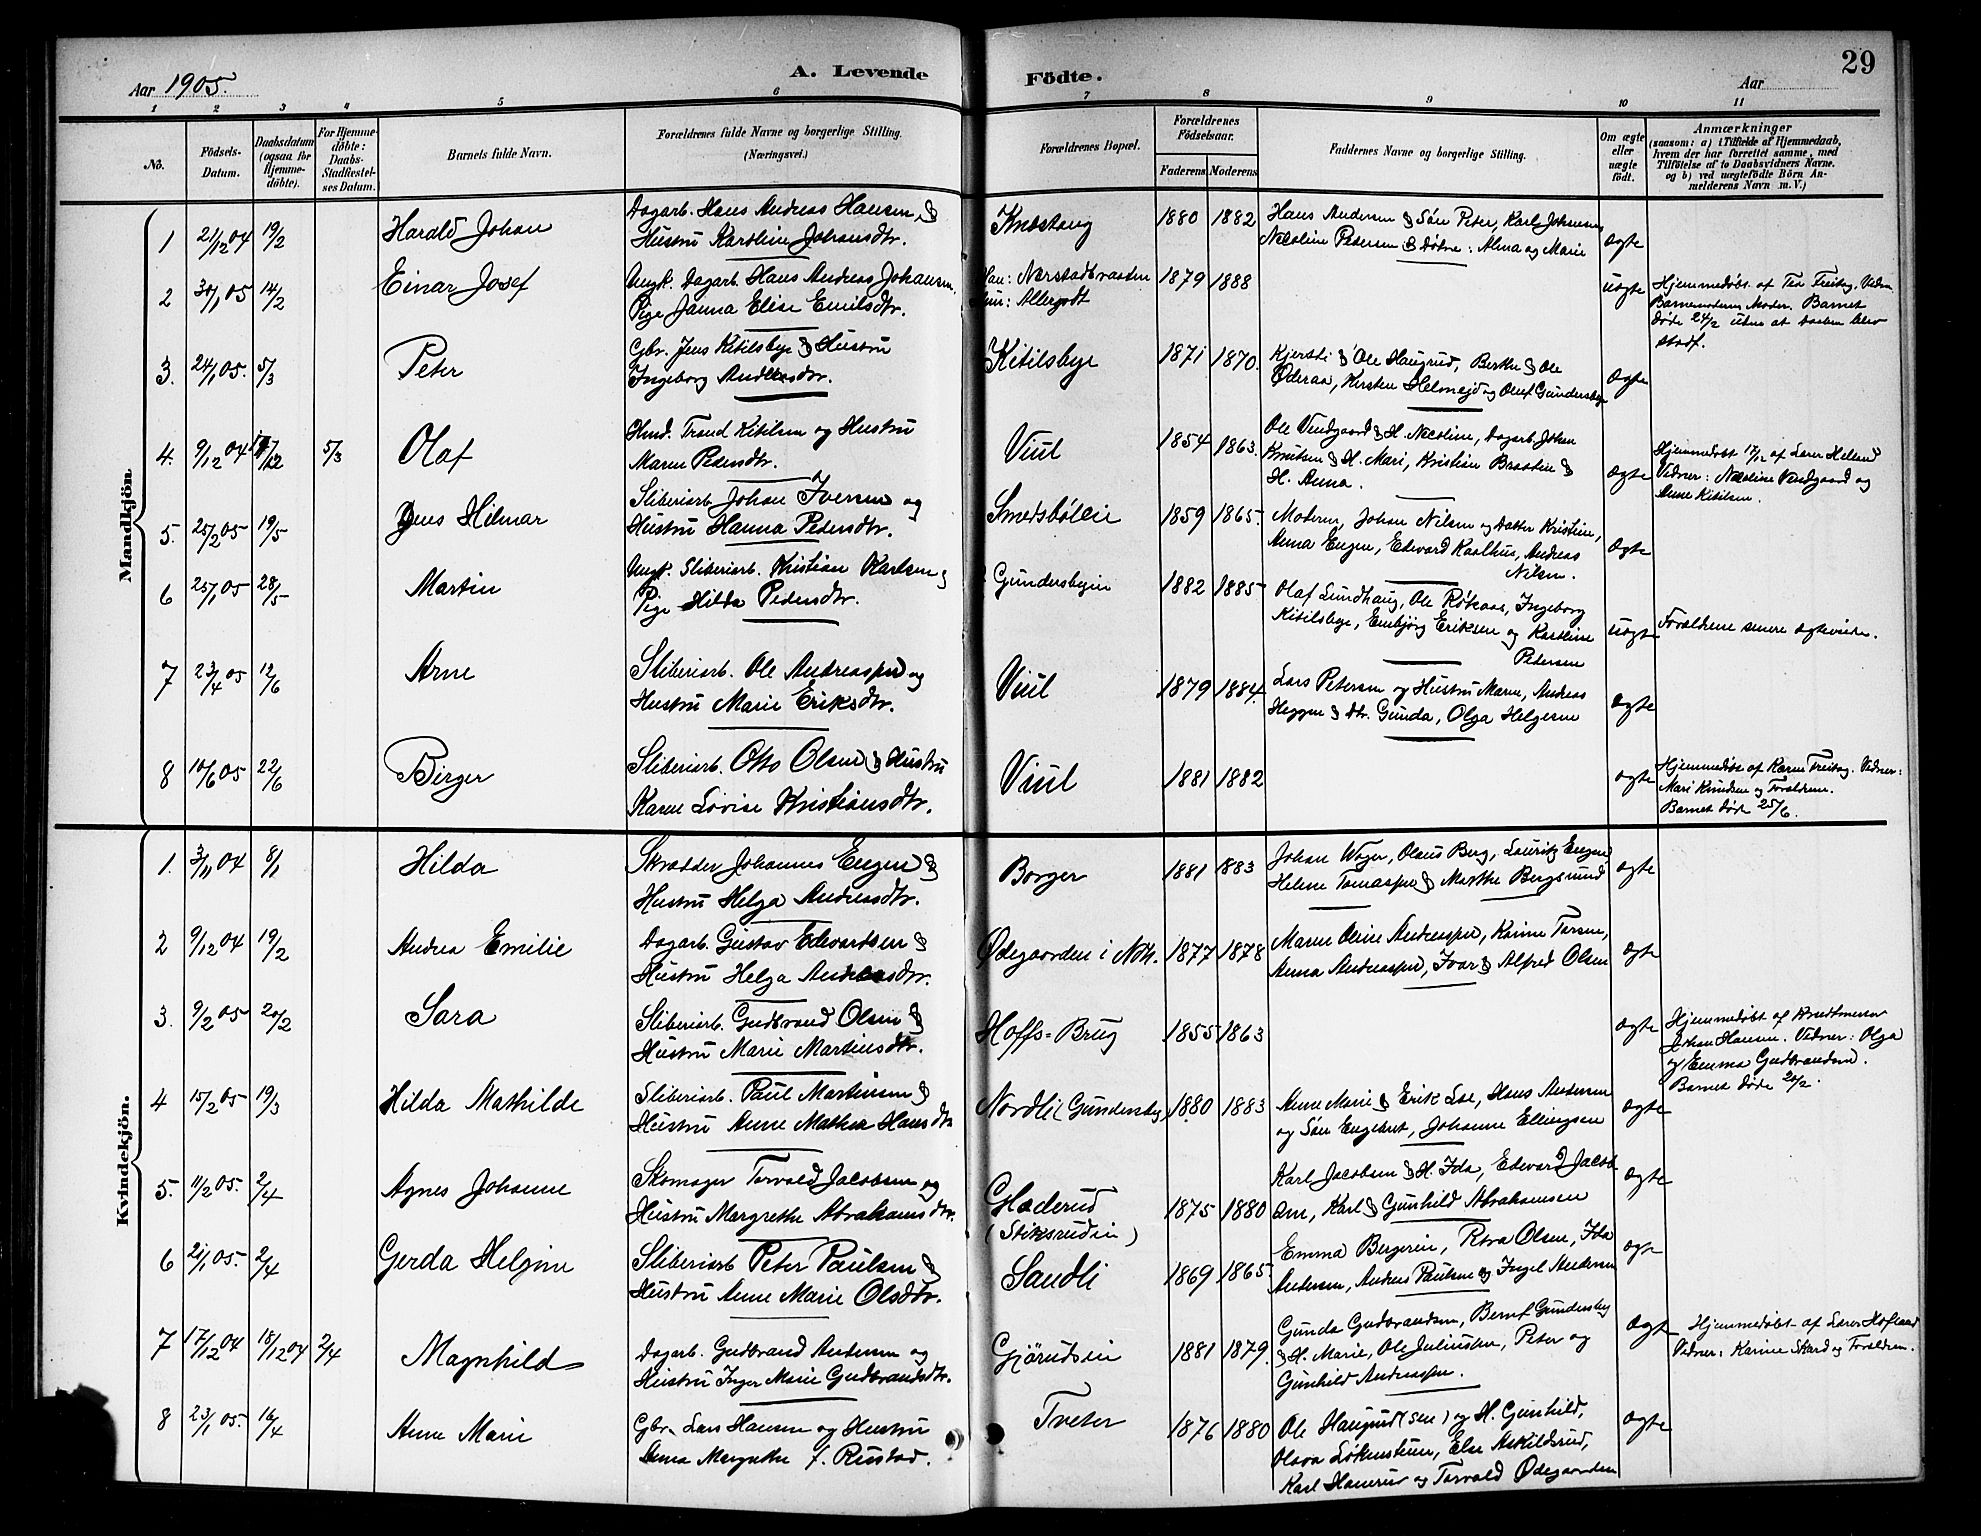 29
Aar 1905.
A. Levende Födte.
Aar
1 2 3 4 5 6 7 8 9 10 11
No.
Födsels-Datum.
Daabsdatum (ogsaa for Hjemme-döbte).
For Hjemme-döbte: Daabs-Stadfæstel-ses Datum.
Barnets fulde Navn.
Forældrenes fulde Navne og borgerlige Stilling. (Næringsvei.)
Forældrenes Bopæl.
Forældrenes Födselsaar.
Faderens Moderens
Faddernes Navne og borgerlige Stilling.
Om ægte eller uægte födt.
Anmærkninger
(saasom: a) i Tilfælde af Hjemmedaab, hvem der har forrettet samme, med Tilföielse af to Daabsvidners Navne. og b) ved uægtefödte Börn An-melderens Navn m. V.)
Mandkjön.
1 21/12 04 19/2 Harald Johan
Dagarb. Hans Andreas Hansen &
Hustru Karoline Johansdtr.
Knestang 1880 1882
Hans Andersen & Sön Peter, Karl Johansen
Nicoline Petersen & Døtre: Alma og Marie
ægte
2 30/1 05 14/2 Einar Josef
Ungk. Dagarb. Hans Andreas Johansen,
Pige Janna Elise Emilsdtr.
Han: Nærstadbraaten
Hun: Allergodt
1879 1888
uægte
Hjemmedøbt af Tea Freitag. Vidn.
Barnemoderens Moder. Barnet
døde 24/2 uden at daaben blev
stadf.
3. 24/1 05. 5/3 Peter
Gbr. Jens Kitilsbye & Hustru
Ingeborg Andersdtr.
Kitilsbye 1871 1870.
Kjersti & Ole Haugrud, Berthe & Ole
Øderaa, Kirsten Helmejd og Oluf Gundersbye
ægte
4. 9/12 04 17/12 5/3 Olaf
Hmd. Trond Kitilsen og Hustru
Maren Pedersdtr.
Viul 1854 1863.
Ole Vendgaard & H. Nicoline, Dagarb. Johan
Knutsen & H. Mari, Kristian Braaten &
H. Anna.
ægte
Hjemmedøbt 17/12 af Lærer Helland
Vidner: Nicoline Vendgaard og
Anne Kitilsen.
5. 25/2 05 19/5 Jens Hilmar
Sliberiarb Johan Iversen og
Hustru Hanna Pedersdtr.
Smedsböleie 1859 1865.
Moderen, Johan Nilsen og Datter Kristine,
Anna Engen, Edvard Kaalhus, Andreas
Nilsen.
ægte
6 25/1 05 28/5 Martin
Ungk. Sliberiarb. Kristian Karlsen &
Pige Hilda Pedersdtr.
Gundersbyeie 1882 1885
Olaf Lundhaug, Ole Røkaas, Ingeborg
Kitilsbye, Embjörg Eriksen og Karoline
Petersen
uægte
Forældrene senere ægteviede.
7 23/4 05 12/6 Arne
Sliberiarb. Ole Andreassen og
Hustru Marie Eriksdtr.
Viul 1879 1884.
Lars Petersen og Hustru Maren, Andreas
Heggen & Dtr. Gunda, Olga Helgesen
ægte
8 10/6 05 22/6 Birger
Sliberiarb. Otto Olsen & Hustru
Karen Lovise Kristiansdtr.
Viul 1881 1882
ægte
Hjemmedøbt af Karen Freitag. Vidner:
Mari Knudsen og Forældrene.
Barnet døde 25/6.
Kvindekjön.
1. 3/11 04 8/1 Hilda
Skrædder Johannes Engen &
Hustru Helga Andreasdtr.
Borger 1881 1883
Johan Wager, Olaus Berg, Lauritz Engen
Helene Tomassen & Marthe Bergsund
ægte
2 9/12 04 19/2 Andrea Emilie
Dagarb. Gustav Edvardsen &
Hustru Helga Andersdtr.
Ødegaarden i Ndh. 1877 1878
Maren Oline Andreassen, Karine Torsen,
Anna Andreassen, Ivar & Alfred Olsen
ægte
3. 9/2 05 20/2 Sara
Sliberiarb. Gudbrand Olsen &
Hustru Marie Martinsdtr.
Hoffs-Brug 1855 1863
ægte
Hjemmedøbt af Brudtmester
Johan Hansen. Vidner: Olga
og Emma Gudbrandsen.
Barnet døde 20/2.
4 15/2 05 19/3 Hilda Mathilde
Sliberiarb. Paul Martinsen &
Hustru Anne Mathea Hansdtr
Nordli (Gundersby) 1880 1883
Anne Marie & Erik Loe, Hans Andersen
og Sön Engebret, Johanne Ellingsen
ægte
5. 11/2 05. 2/4 Agnes Johanne
Skomager Torvald Jacobsen og
Hustru Margrethe Abrahamsdtr.
Gladerud
(Stiksrudeie)
1875 1880
Karl Jacobsen & H. Ida, Edvard Jacob
sen, Karl & Gunhild Abrahamsen
ægte
6 21/1 05. 2/4 Gerda Helgine
Sliberiarb Peter Paulsen &
Hustru Anne Marie Olsdtr.
Sandli 1869 1865.
Emma Bergereie, Petra Olsen, Ida
Andersen, Andreas Paulsen og Ingel Andersen
ægt
7 17/12 04 18/12 04 2/4 Magnhild
Dagarb. Gudbrand Andersen og
Hustru Inger Marie Gudbrandsdtr.
Gjörudseie 1881 1879.
Gunda Gudbrandsen, Bernt Gundersby
& H. Marie, Ole Juliussen, Peter og
Gunhild Andreassen.
ægte
Hjemmedøbt af Lærer Hofland
Vidner: Karine Skard og Forældren.
8 23/1 05. 16/4 Anne Marie
Gbr. Lars Hansen og Hustru
Anna Margrethe f. Rustad.
Tveter 1876 1880
Ole Haugrud (sen) og H. Gunhild,
Olava Løkensteien, Else Askildsrud,
Karl Hanerud og Torvald Ødegaarden
ægte